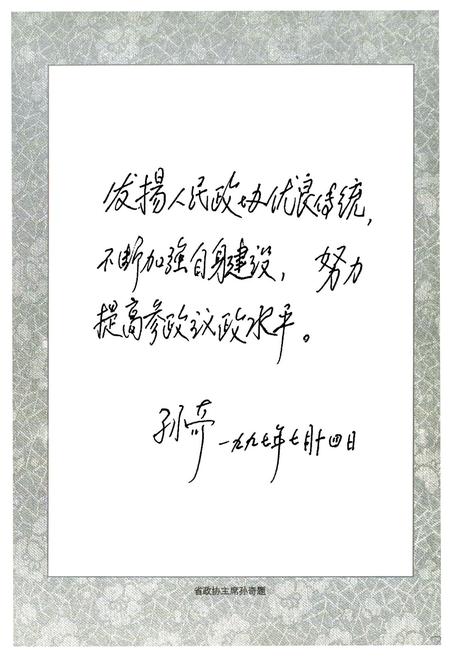 发揚人民政协优良传统，
不断加强自身建设，努力
提高参政议政水平。
孙奇 一九九七年七月十四日
省政协主席孙奇题